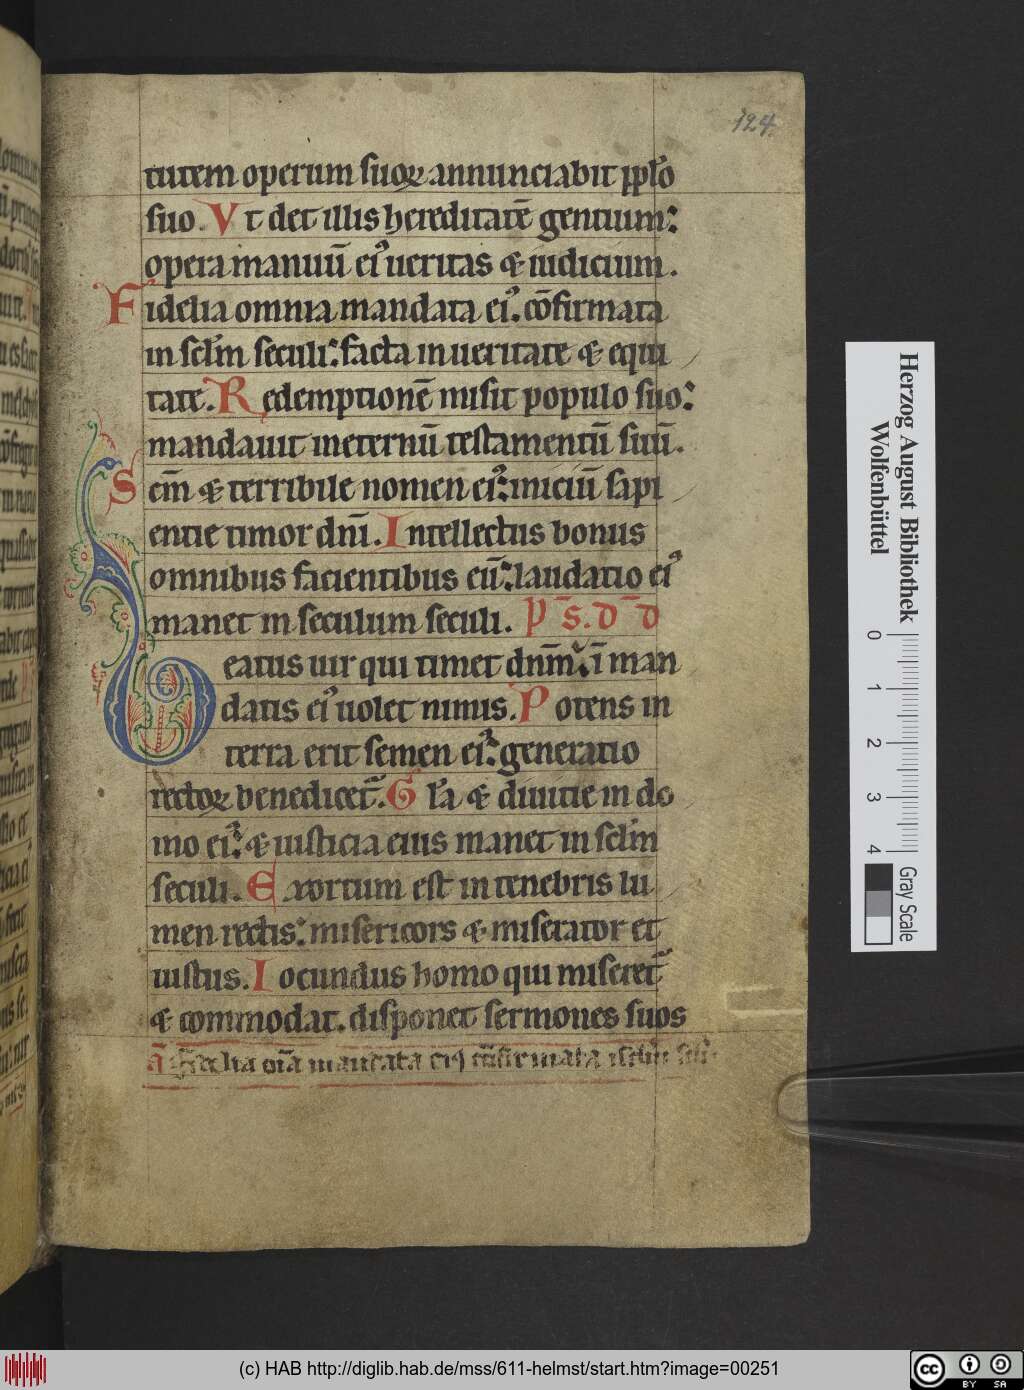 124
tutem operum suoꝝ annunciabit ppl̄o
suo. Vt det illis hereditatē gentium:
opera manuū ei᾽ ueritas & iudicium.
Fidelia omnia mandata ei᾽. cōfirmata
in sclm̄ seculi: facta in ueritate & equi
tate. Redemptionē misit populo suo:
mandauit ineternū testamentū suū.
Scm̄ & terribile nomen ei᾽: iniciū sapi
entie timor dnī. Intellectus bonus
omnibus facientibus eū: laudatio ei᾽
manet in seculum seculi. P̄ S. D̄ D
Beatus uir qui timet dnm̄: ī man
datis ei᾽ uolet nimis. Potens in
terra erit semen ei᾽: generatio
rectoꝝ benedicet᷑. Gl̄a & diuitie in do
mo ei᾽: & iusticia eius manet in sclm̄
seculi. Exortum est in tenebris lu
men rectis: misericors & miserator et
iustus. Iocundus homo qui miseret᷑
& commodat. disponet sermones suos
a᷑ Fidelia oīa mandata eiꝰ cōfirmata ī sclm̄
Herzog August Bibliothek
Wolfenbüttel
0 1 2 3 4
Gray Scale
(c) HAB http://diglib.hab.de/mss/611-helmst/start.htm?image=00251
cc BY SA